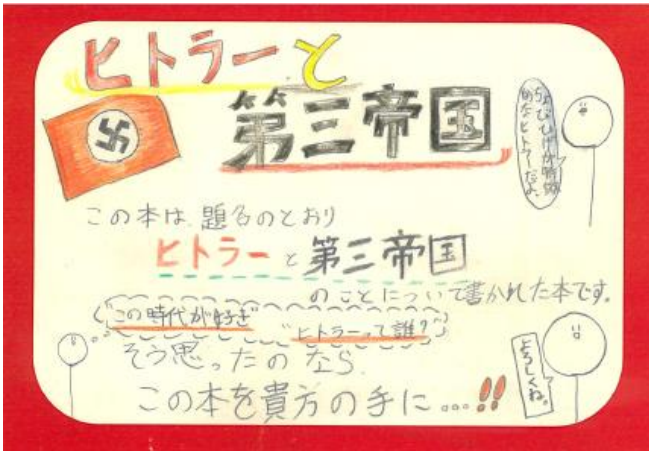 ヒトラーと
第三帝国
ちょびひげが特徴
的なヒトラーだよ。
この本は、題名のとおり
ヒトラーと第三帝国
のことについて書かれた本です。
この時代が好き
ヒトラーって誰?
そう思ったのなら、
この本を貴方の手に…!!
よろしくね。